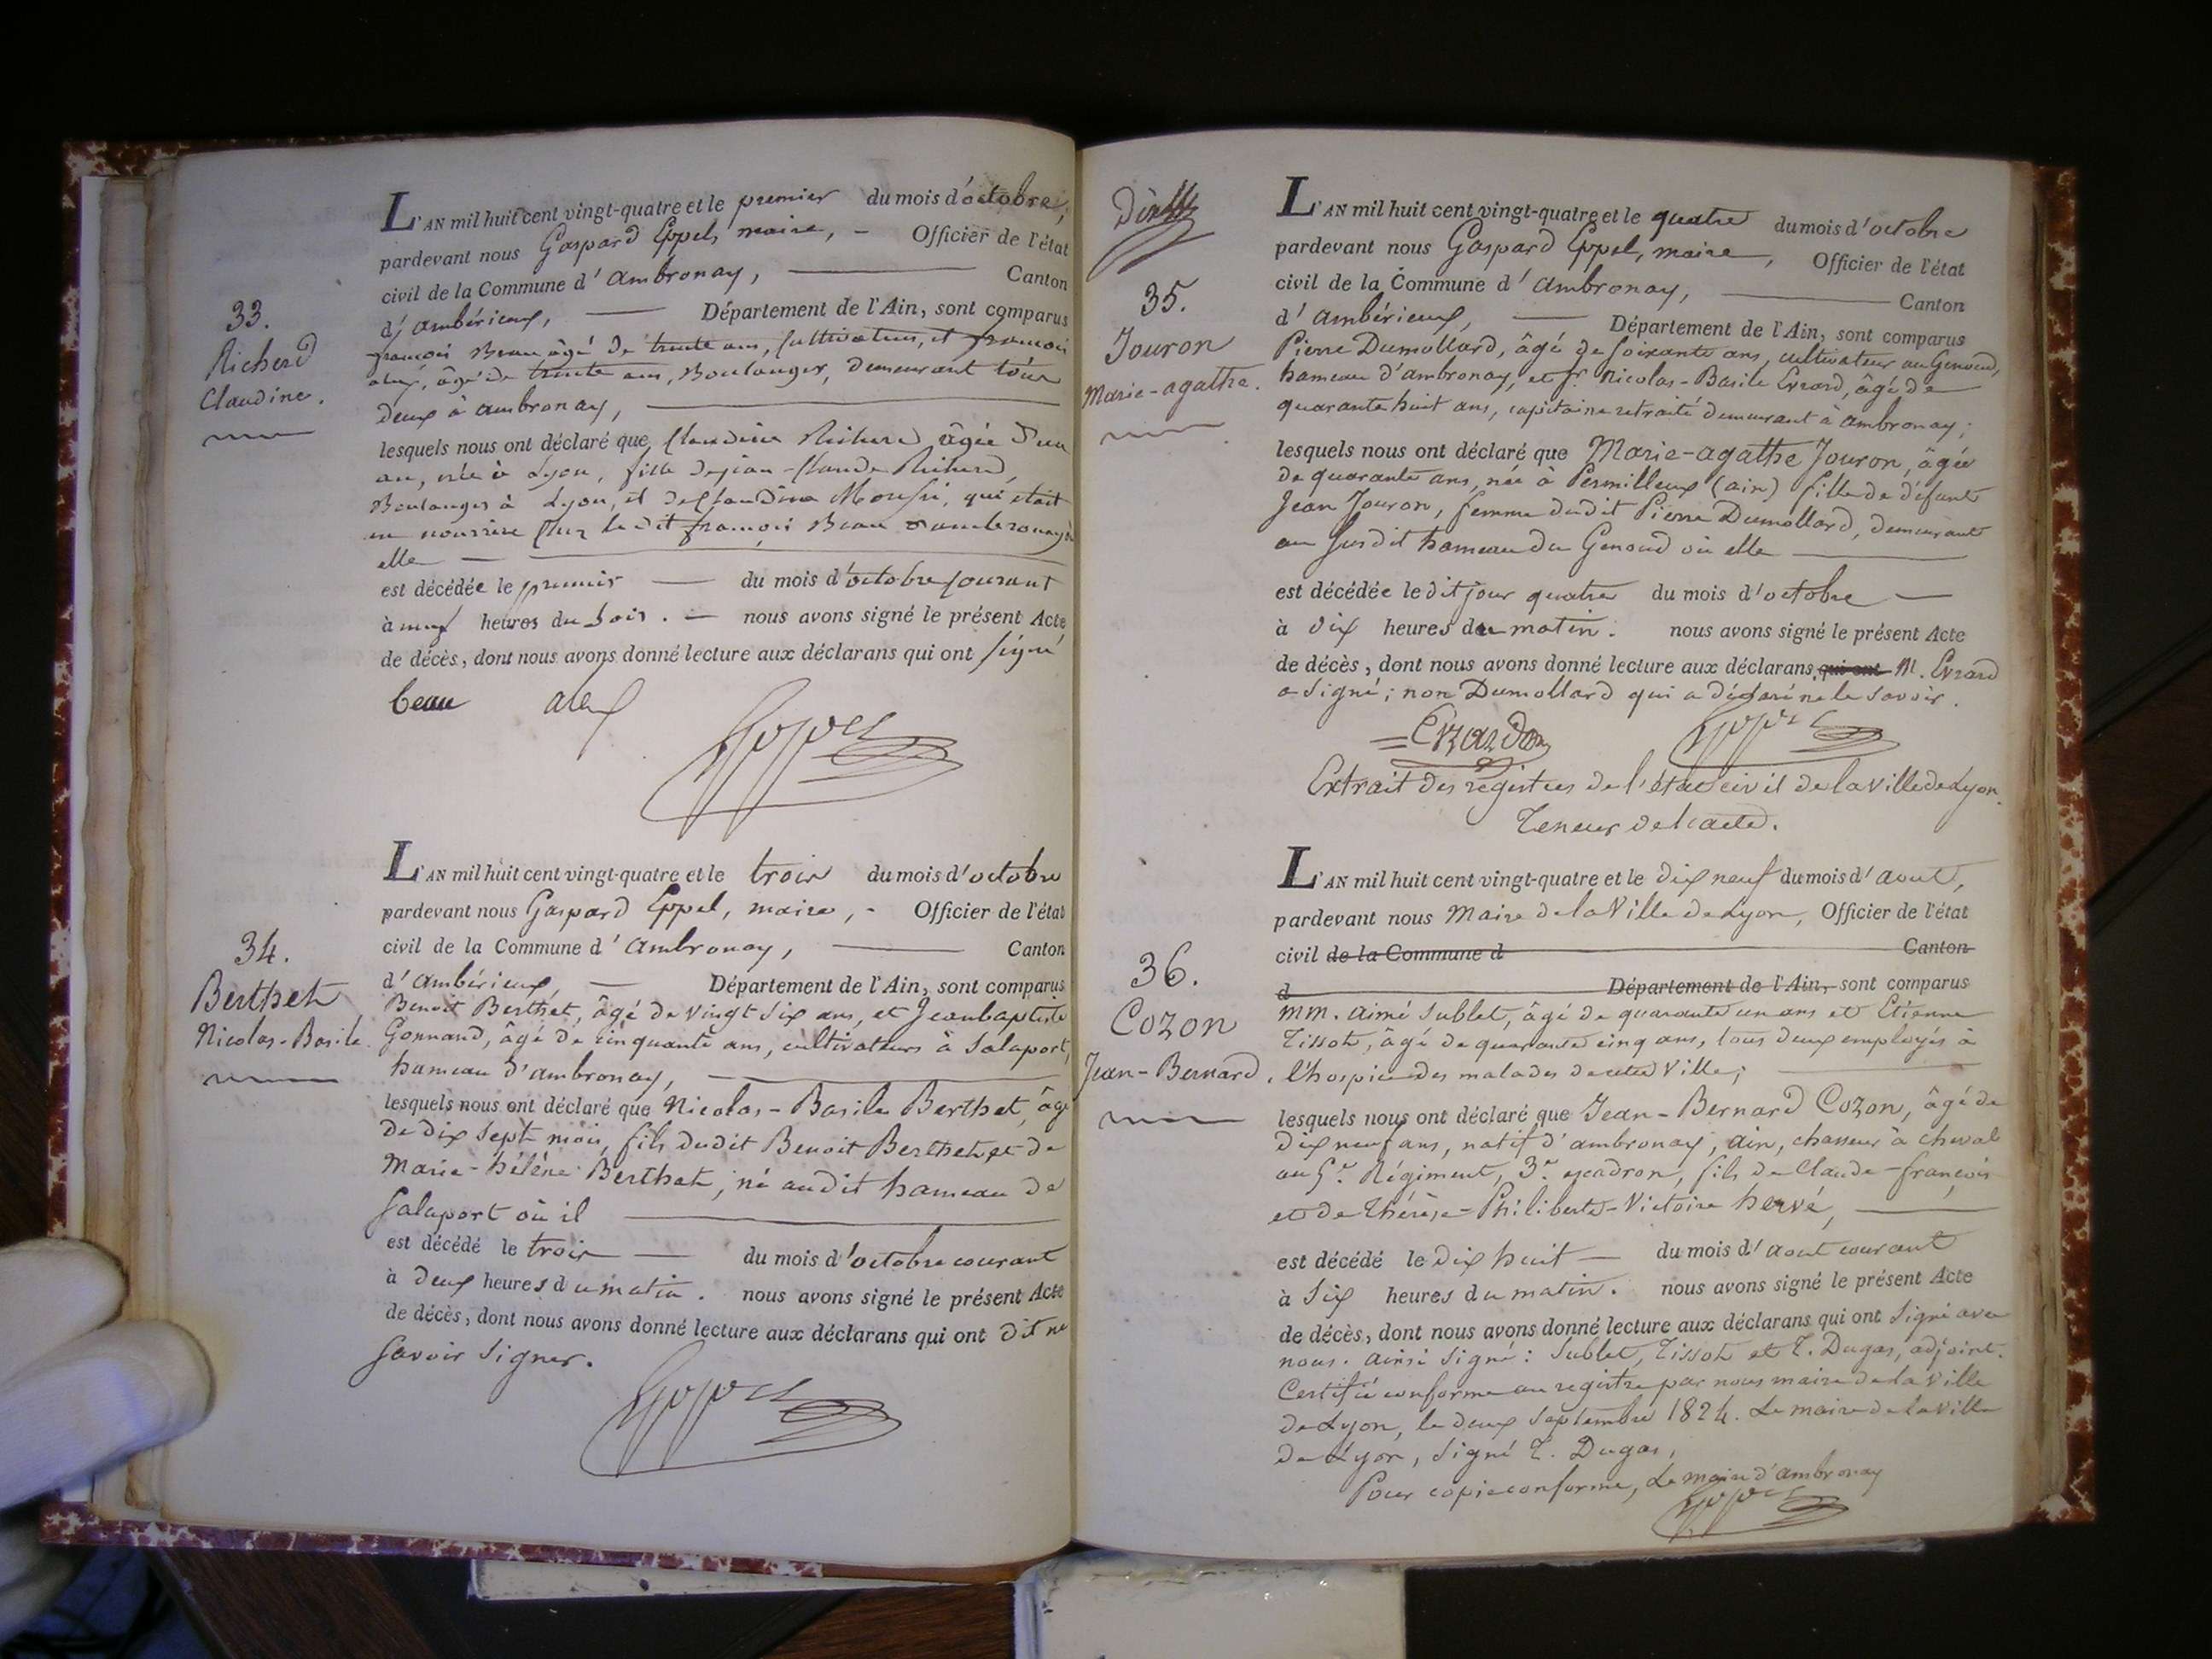 L'AN mil huit cent vingt-quatre et le premier du mois d'octobre,
pardevant nous Gaspard Eppel, maire, - Officier de l'état
civil de la Commune d'ambronay, — Canton
d'ambérieux, — Département de l'Ain, sont comparus
33.
Richerd
Claudine.
françois Beau âgé de trente ans, Cultivateur, et françois
alex, âgé de trente ans, Boulanger, demeurant tous
deux à ambronay, —
lesquels nous ont déclaré que Claudine Richerd âgée d'un
an, née à Lyon, fille de jean-Claude Richerd,
Boulanger à Lyon, et de Claudine, qui était
en nourrice Chez le dit françois Beau d'ambronay où
elle —
est décédée le premier — du mois d'octobre Courant
à neuf heures du Soir. — nous avons signé le présent Acte
de décès, dont nous avons donné lecture aux déclarans qui ont signé
beau alex
Eppel
L'AN mil huit cent vingt-quatre et le trois du mois d'octobre
pardevant nous Gaspard Eppel, maire, - Officier de l'état
civil de la Commune d'ambronay, — Canton
d'ambérieux, — Département de l'Ain, sont comparus
34.
Berthet
Nicolas-Basile.
Benoit Berthet, âgé de vingt six ans, et Jean baptiste
Gonnand, âgé de cinquante ans, cultivateurs à Salaport,
hameau d'ambronay, —
lesquels nous ont déclaré que Nicolas-Basile Berthet, âgé
de dix sept mois, fils dudit Benoit Berthet et de
Marie-hélène Berthet, né audit hameau de
Salaport où il —
est décédé le trois — du mois d'octobre courant
à deux heures du matin. nous avons signé le présent Acte
de décès, dont nous avons donné lecture aux déclarans qui ont dit ne
savoir signer.
Eppel
L'AN mil huit cent vingt-quatre et le quatre du mois d'octobre
pardevant nous Gaspard Eppel, maire, Officier de l'état
civil de la Commune d'ambronay, — Canton
d'ambérieux, — Département de l'Ain, sont comparus
35.
Jouron
Marie-agathe.
Pierre Dumollard, âgé de soixante ans, cultivateur au Genoud,
hameau d'ambronay, et Sr. Nicolas-Basile Evrard, âgé de
quarante huit ans, capitaine retraité demeurant à ambronay;
lesquels nous ont déclaré que Marie-agathe Jouron, âgée
de quarante ans, née à Permilleux (ain) fille de défunt
Jean Jouron, femme dudit Pierre Dumollard, demeurant
au susdit hameau du Genoud où elle —
est décédée ledit jour quatre du mois d'octobre —
à dix heures du matin. nous avons signé le présent Acte
de décès, dont nous avons donné lecture aux déclarans, qui ont M. Evrard
a signé; non Dumollard qui a déclaré ne le savoir.
Evrard Eppel
Extrait des registres de l'état civil de la ville de Lyon.
Teneur de l'acte.
L'AN mil huit cent vingt-quatre et le dix neuf du mois d'aout,
pardevant nous Maire de la Ville de Lyon, Officier de l'état
civil de la Commune d — Canton
d — Département de l'Ain, sont comparus
36.
Cozon
Jean-Bernard.
MM. aimé Sublet, âgé de quarante un ans et Etienne
Tissot, âgé de quarante cinq ans, tous deux employés à
l'hospice des malades de cette Ville; —
lesquels nous ont déclaré que Jean-Bernard Cozon, âgé de
dix neuf ans, natif d'ambronay, ain, chasseur à cheval
au 5e. Régiment, 3e. escadron, fils de Claude-françois
et de Thérèse-Philiberte-Victoire hervé, —
est décédé le dix huit — du mois d'aout courant
à six heures du matin. nous avons signé le présent Acte
de décès, dont nous avons donné lecture aux déclarans qui ont signé avec
nous. ainsi signé: Sublet, Tissot et T. Dugas, adjoint.
Certifié conforme au registre par nous maire de la ville
de Lyon, le deux Septembre 1824. Le maire de la ville
de Lyon, signé T. Dugas,
Pour copie conforme, Le maire d'ambronay
Eppel